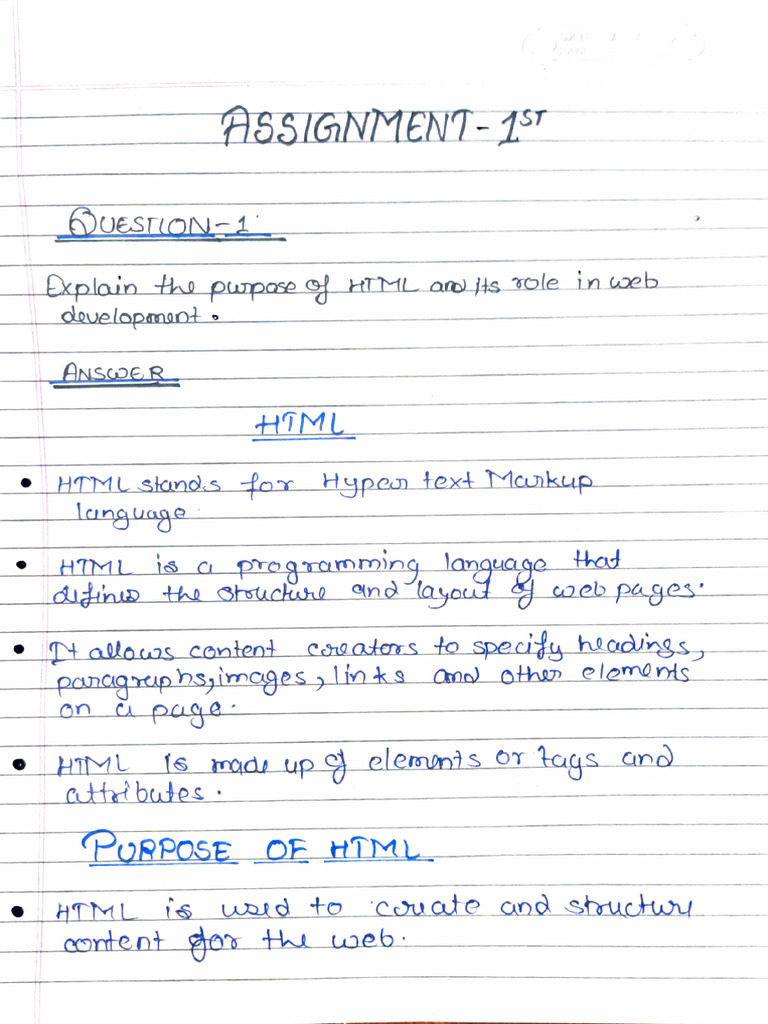 ASSIGNMENT - 1ST
QUESTION-1
Explain the purpose of HTML and its role in web
development.
ANSWER
HTML
• HTML stands for Hyper text Markup
language.
• HTML is a programming language that
defines the structure and layout of web pages.
• It allows content creators to specify headings,
paragraphs, images, links and other elements
on a page.
• HTML is made up of elements or tags and
attributes.
PURPOSE OF HTML
• HTML is used to create and structure
content for the web.